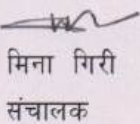 मिना गिरी
संचालक